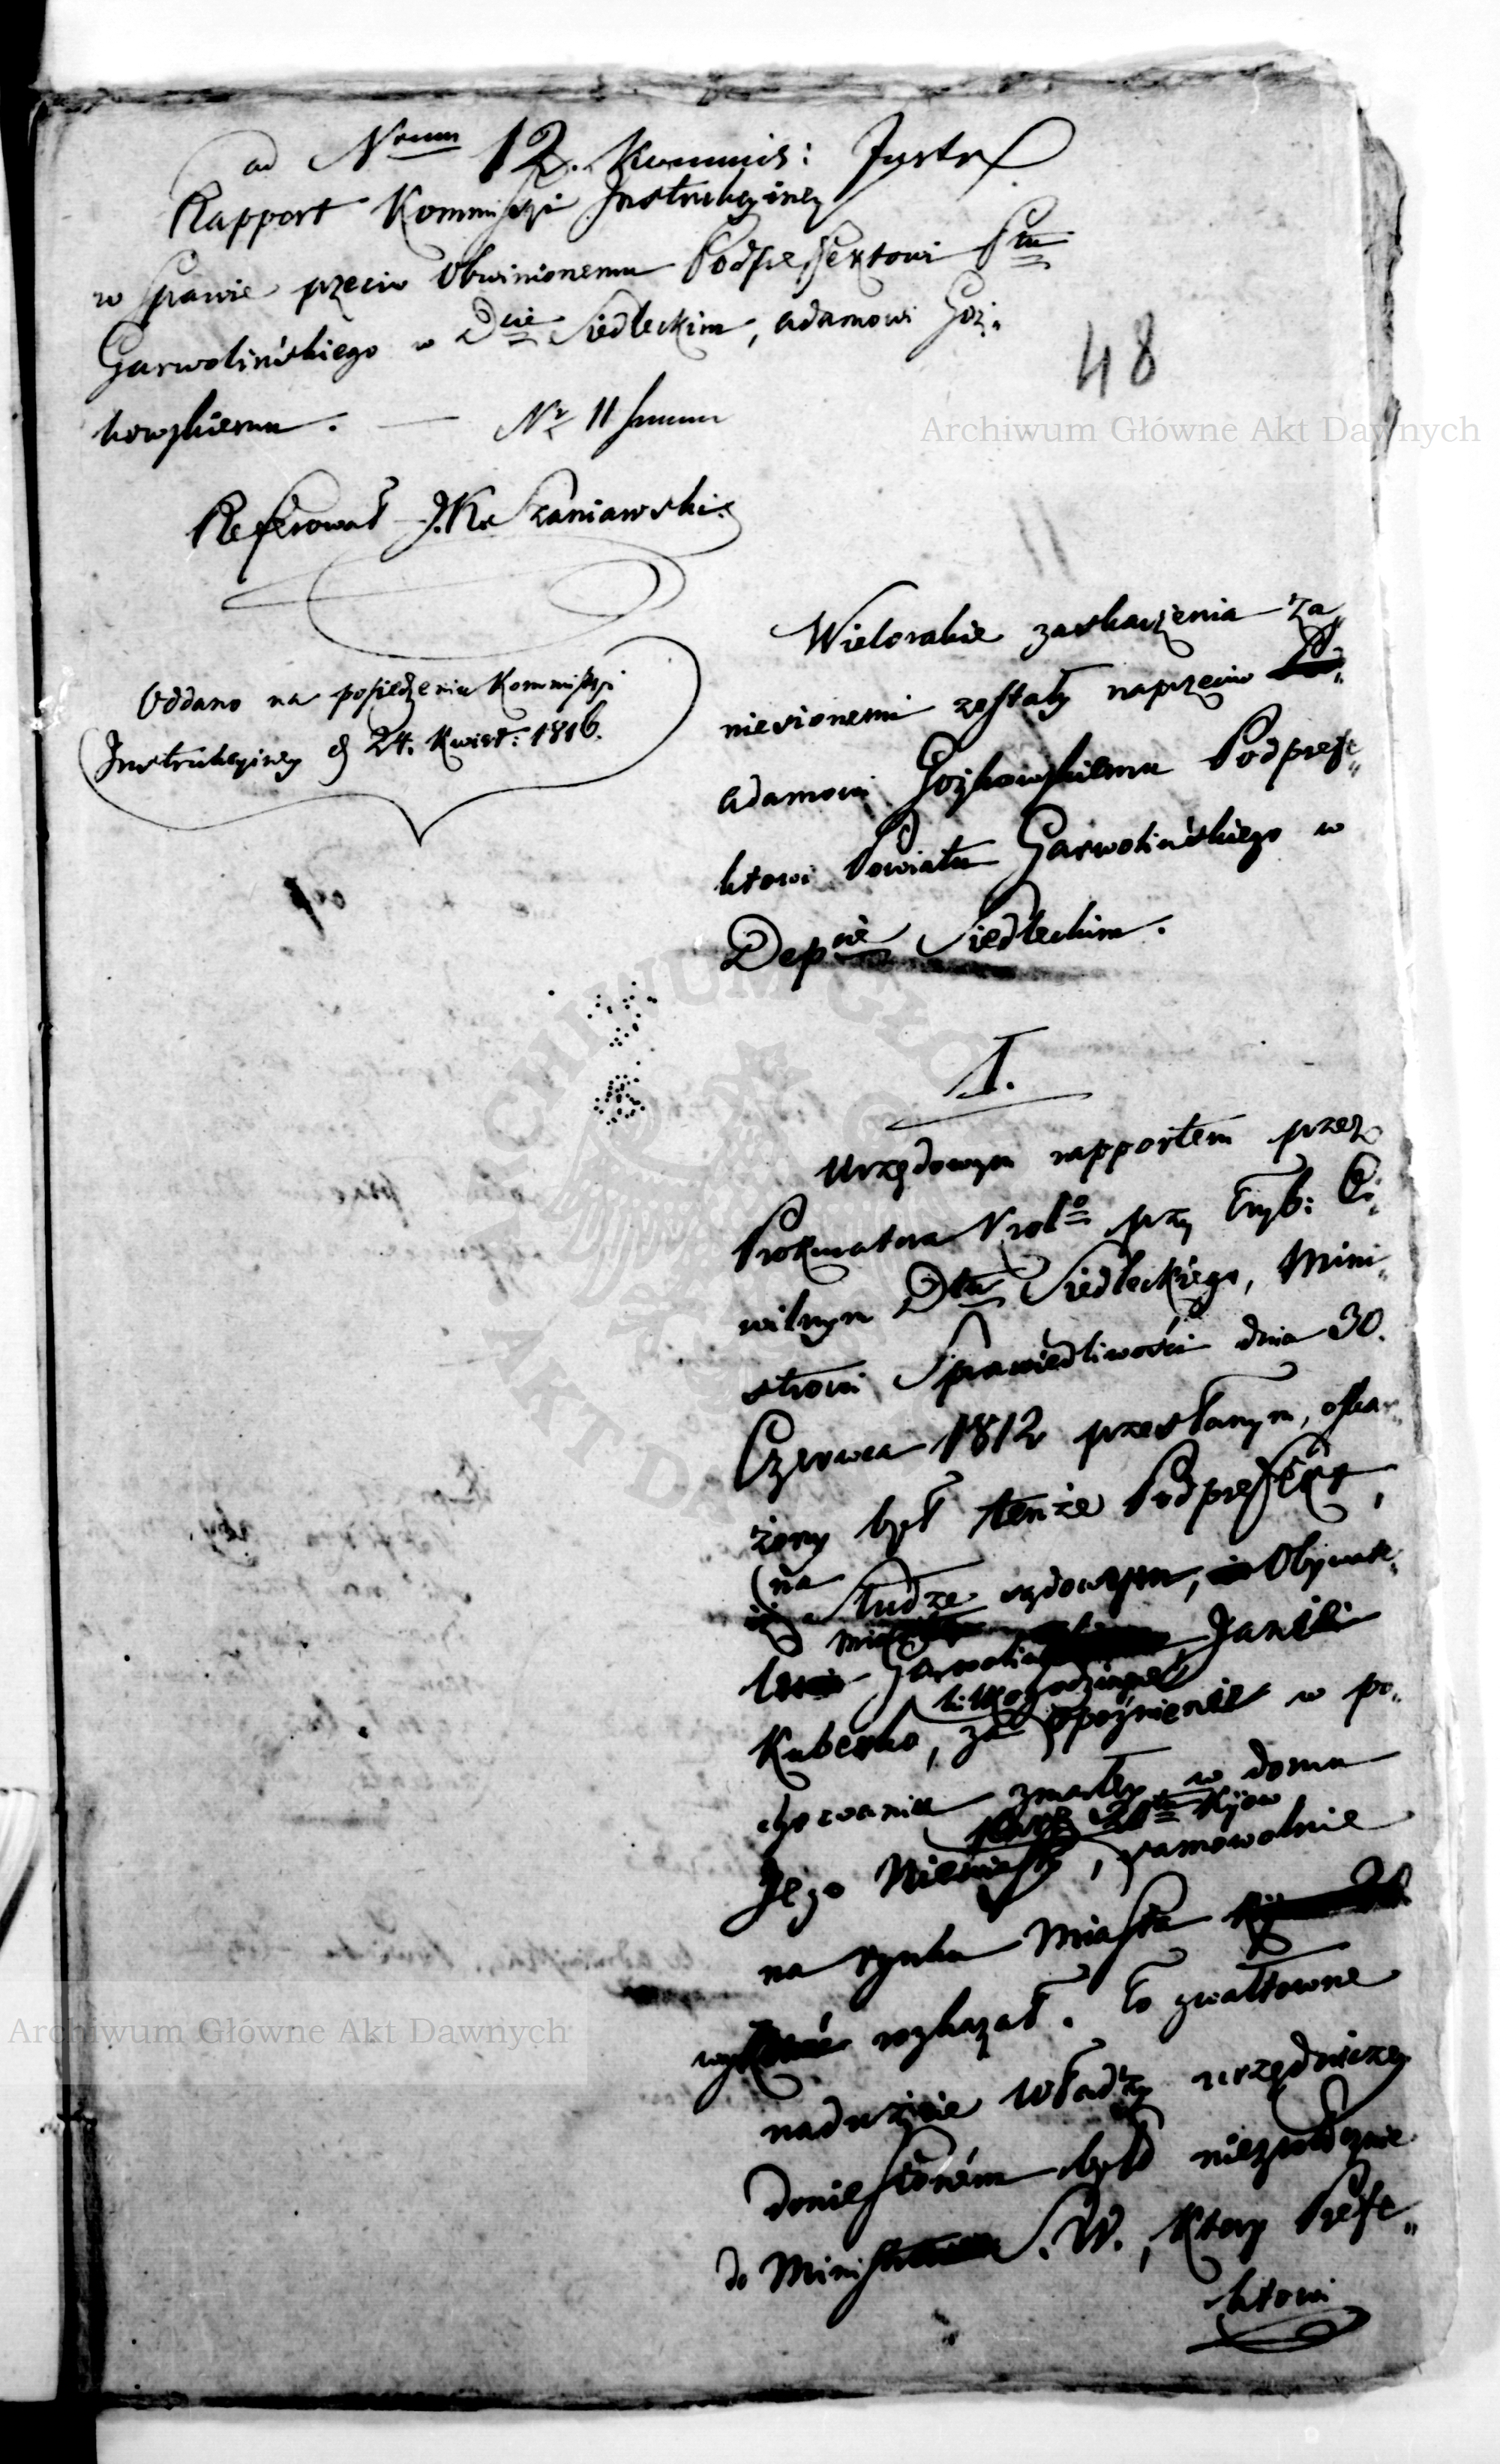 ad Nrum 12. Kommis: Instr
Rapport Kommissyi Instrukcyiney
w Sprawie przeciw Obwinionemu Podprefektowi Ptu
Garwolińskiego w Dcie Siedleckim, Adamowi Goź„
kowskiemu. — Nr 11
48
Archiwum Główne Akt Dawnych
Referował J. K. Szaniawski
Oddano na posiedzeniu Kommissyi
Instrukcyiney d 24. Kwiet: 1816.
Wielorakie zaskarżenia za„
niesionemi zostały naprzeciw
Adamowi Goźkowskiemu Podprefe„
ktowi Powiatu Garwolińskiego w
Depcie Siedleckim.
I.
Urzędowym rapportem przez
Prokuratora Krolo przy Tryb: Cy„
wilnym Dtu Siedleckiego, Mini„
strowi Sprawiedliwości dnia 30.
Czerwca 1812 przesłanym, oskar„
żony był tenże Podprefekt,
na
iż Słudze sądowym, Obywate„
miasta
Garwolina Janie
kilkogodzinne
Kubesko, za opóźnienie w po„
chowaniu zmarłey w domu
Jego Niewiasty, samowolnie
kijow
na rynku Miasta
rozkazał. To gwałtowne
nadużycie władzy urzędniczey
doniesioném było niezwłocznie
do Minist S. W., ktory Prefe„
ktowi
Archiwum Główne Akt Dawnych
ARCHIWUM GŁÓWNE AKT DAWNYCH